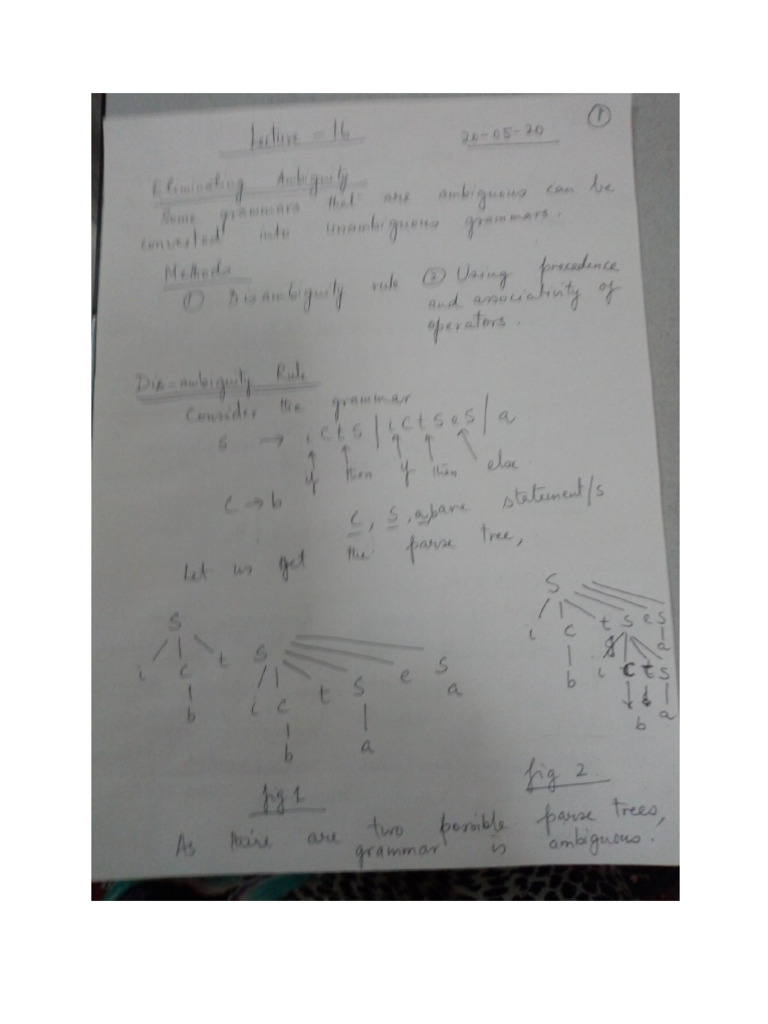 1
Lecture - 16
20-05-20
Eliminating Ambiguity
Some grammars that are ambiguous can be
converted into unambiguous grammars.
Methods
① Disambiguity rule ② Using precedence
and associativity of
operators.
Dis-ambiguity Rule
Consider the grammar
S → i C t S | i C t S e S | a
if then if then else
C → b
C, S, a, b are statement/s
Let us get the parse tree,
S
i C t S e S
b i C t S a
b a
fig 2
S
i C t S
b i C t S e S
b a a
fig 1
As there are two possible parse trees,
grammar is ambiguous.